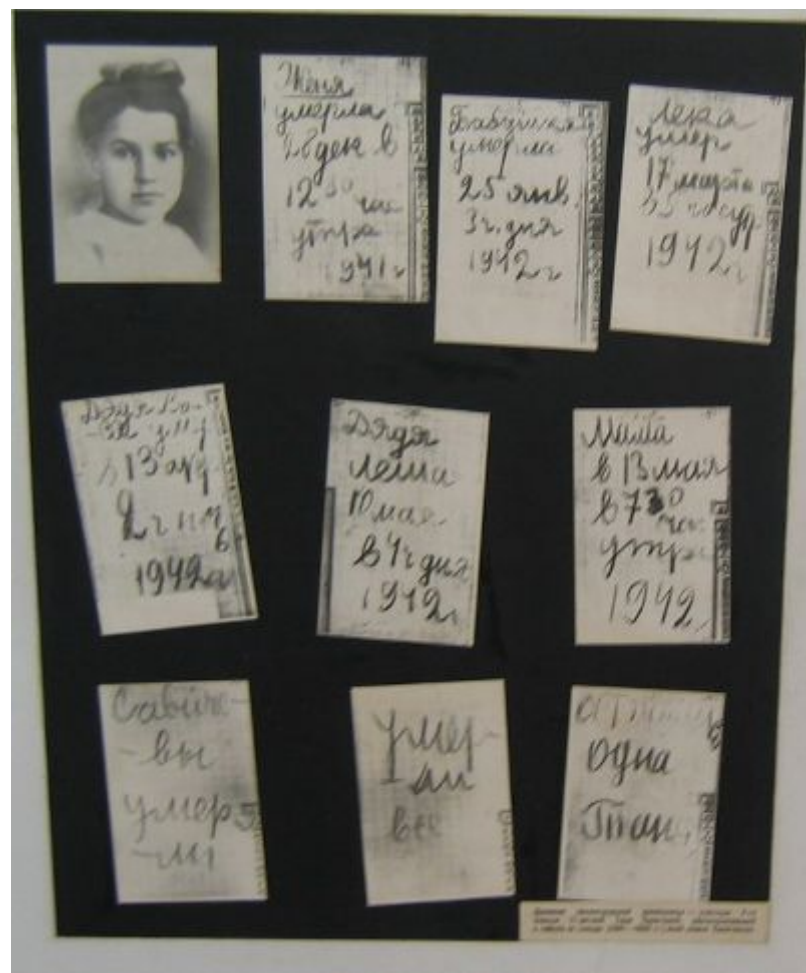 Женя
умерла
28 дек в
12 30 час
утра
1941 г
Бабушка
умерла
25 янв.
3 ч. дня
1942 г
Лека
умер
17 марта
в 5 час утр
1942 г
Дядя Ва-
-ся ум
в 13 апр
2 ч ноч
1942 г
Дядя
Леша
10 мая
в 4 ч дня
1942 г
Мама
в 13 мая
в 7 30
час
утра
1942
Савиче-
-вы
умер
-ли
умер-
-ли
все
одна
Таня